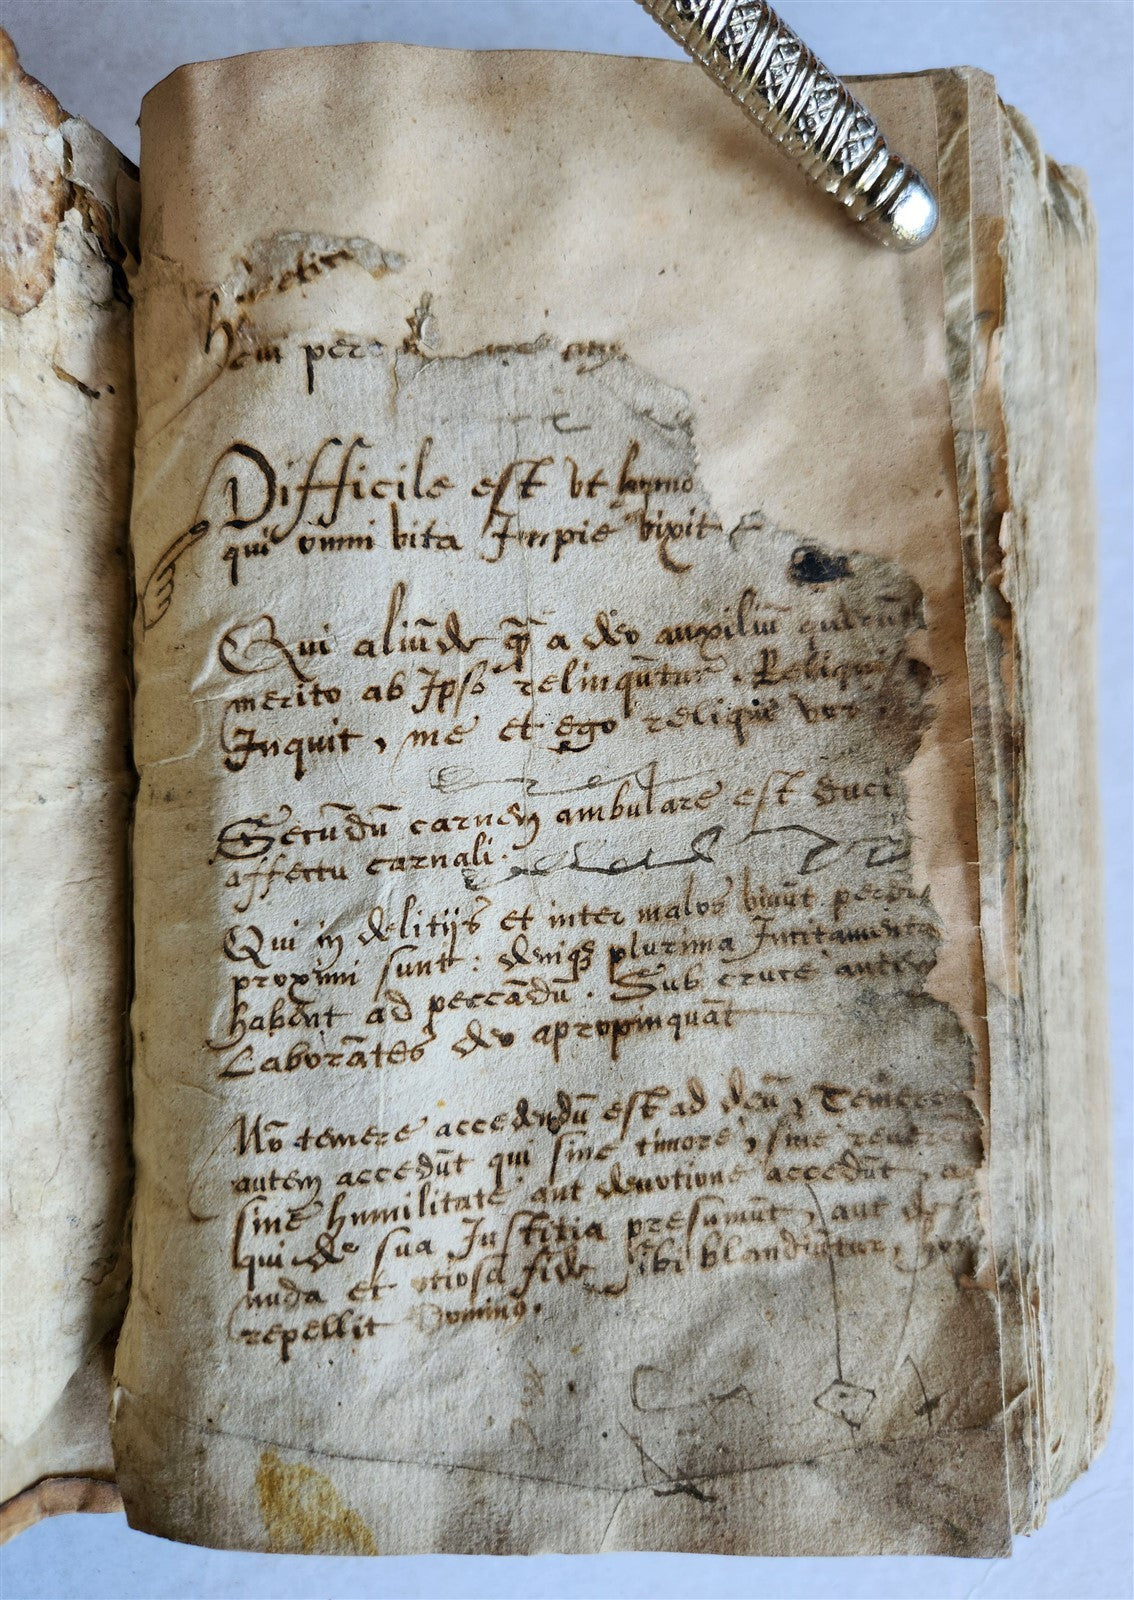 pere
Difficile est vt homo
qui omni vita Impie vixit
Qui aliūde q̄ a deo auxiliū querūt
merito ab Ipso relinquūtur. Reliquis
Inquit, me et ego reliqui vos
Secūdū carnem ambulare est duci
affectu carnali.
Qui in delitijs et inter malos viuūt
proximi sunt: deniqȝ plurima Incitamenta
habent ad peccādū. Sub cruce autem
Laborātes deo apropinquāt
Nō temere accedendū est ad deū, Temere
autem accedūt qui sine timore, sine
sine humilitate aut deuotione accedūt,
qui de sua Iustitia presumūt, aut de
nuda et otiosa fide sibi blandiūtur,
repellit Dominus.